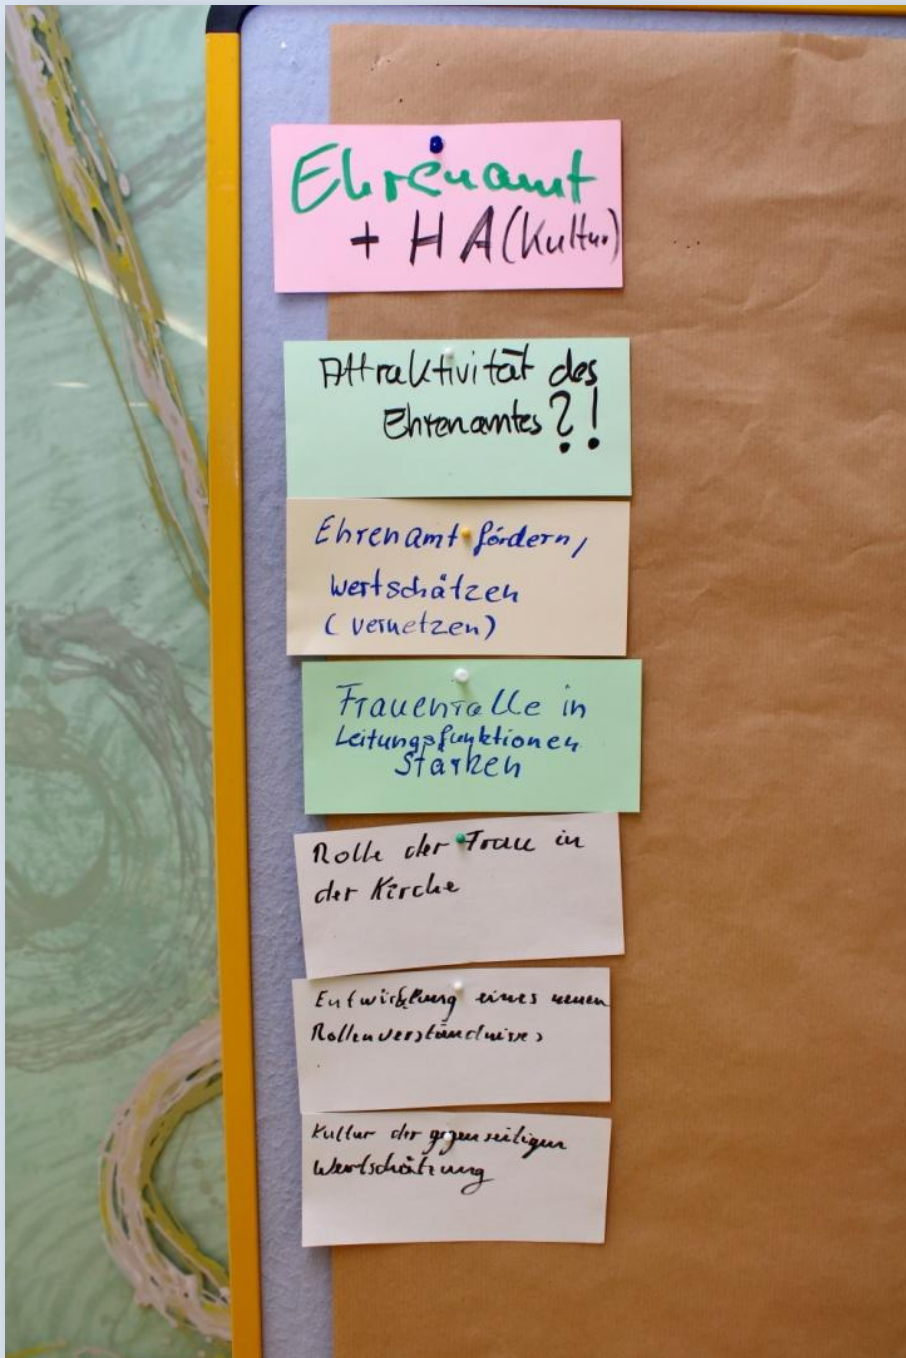 Ehrenamt
+ HA (Kultur)
Attraktivität des
Ehrenamtes ?!
Ehrenamt fördern,
wertschätzen
(vernetzen)
Frauenrolle in
Leitungsfunktionen
stärken
Rolle der Frau in
der Kirche
Entwicklung eines neuen
Rollenverständnisses
Kultur der gegenseitigen
Wertschätzung